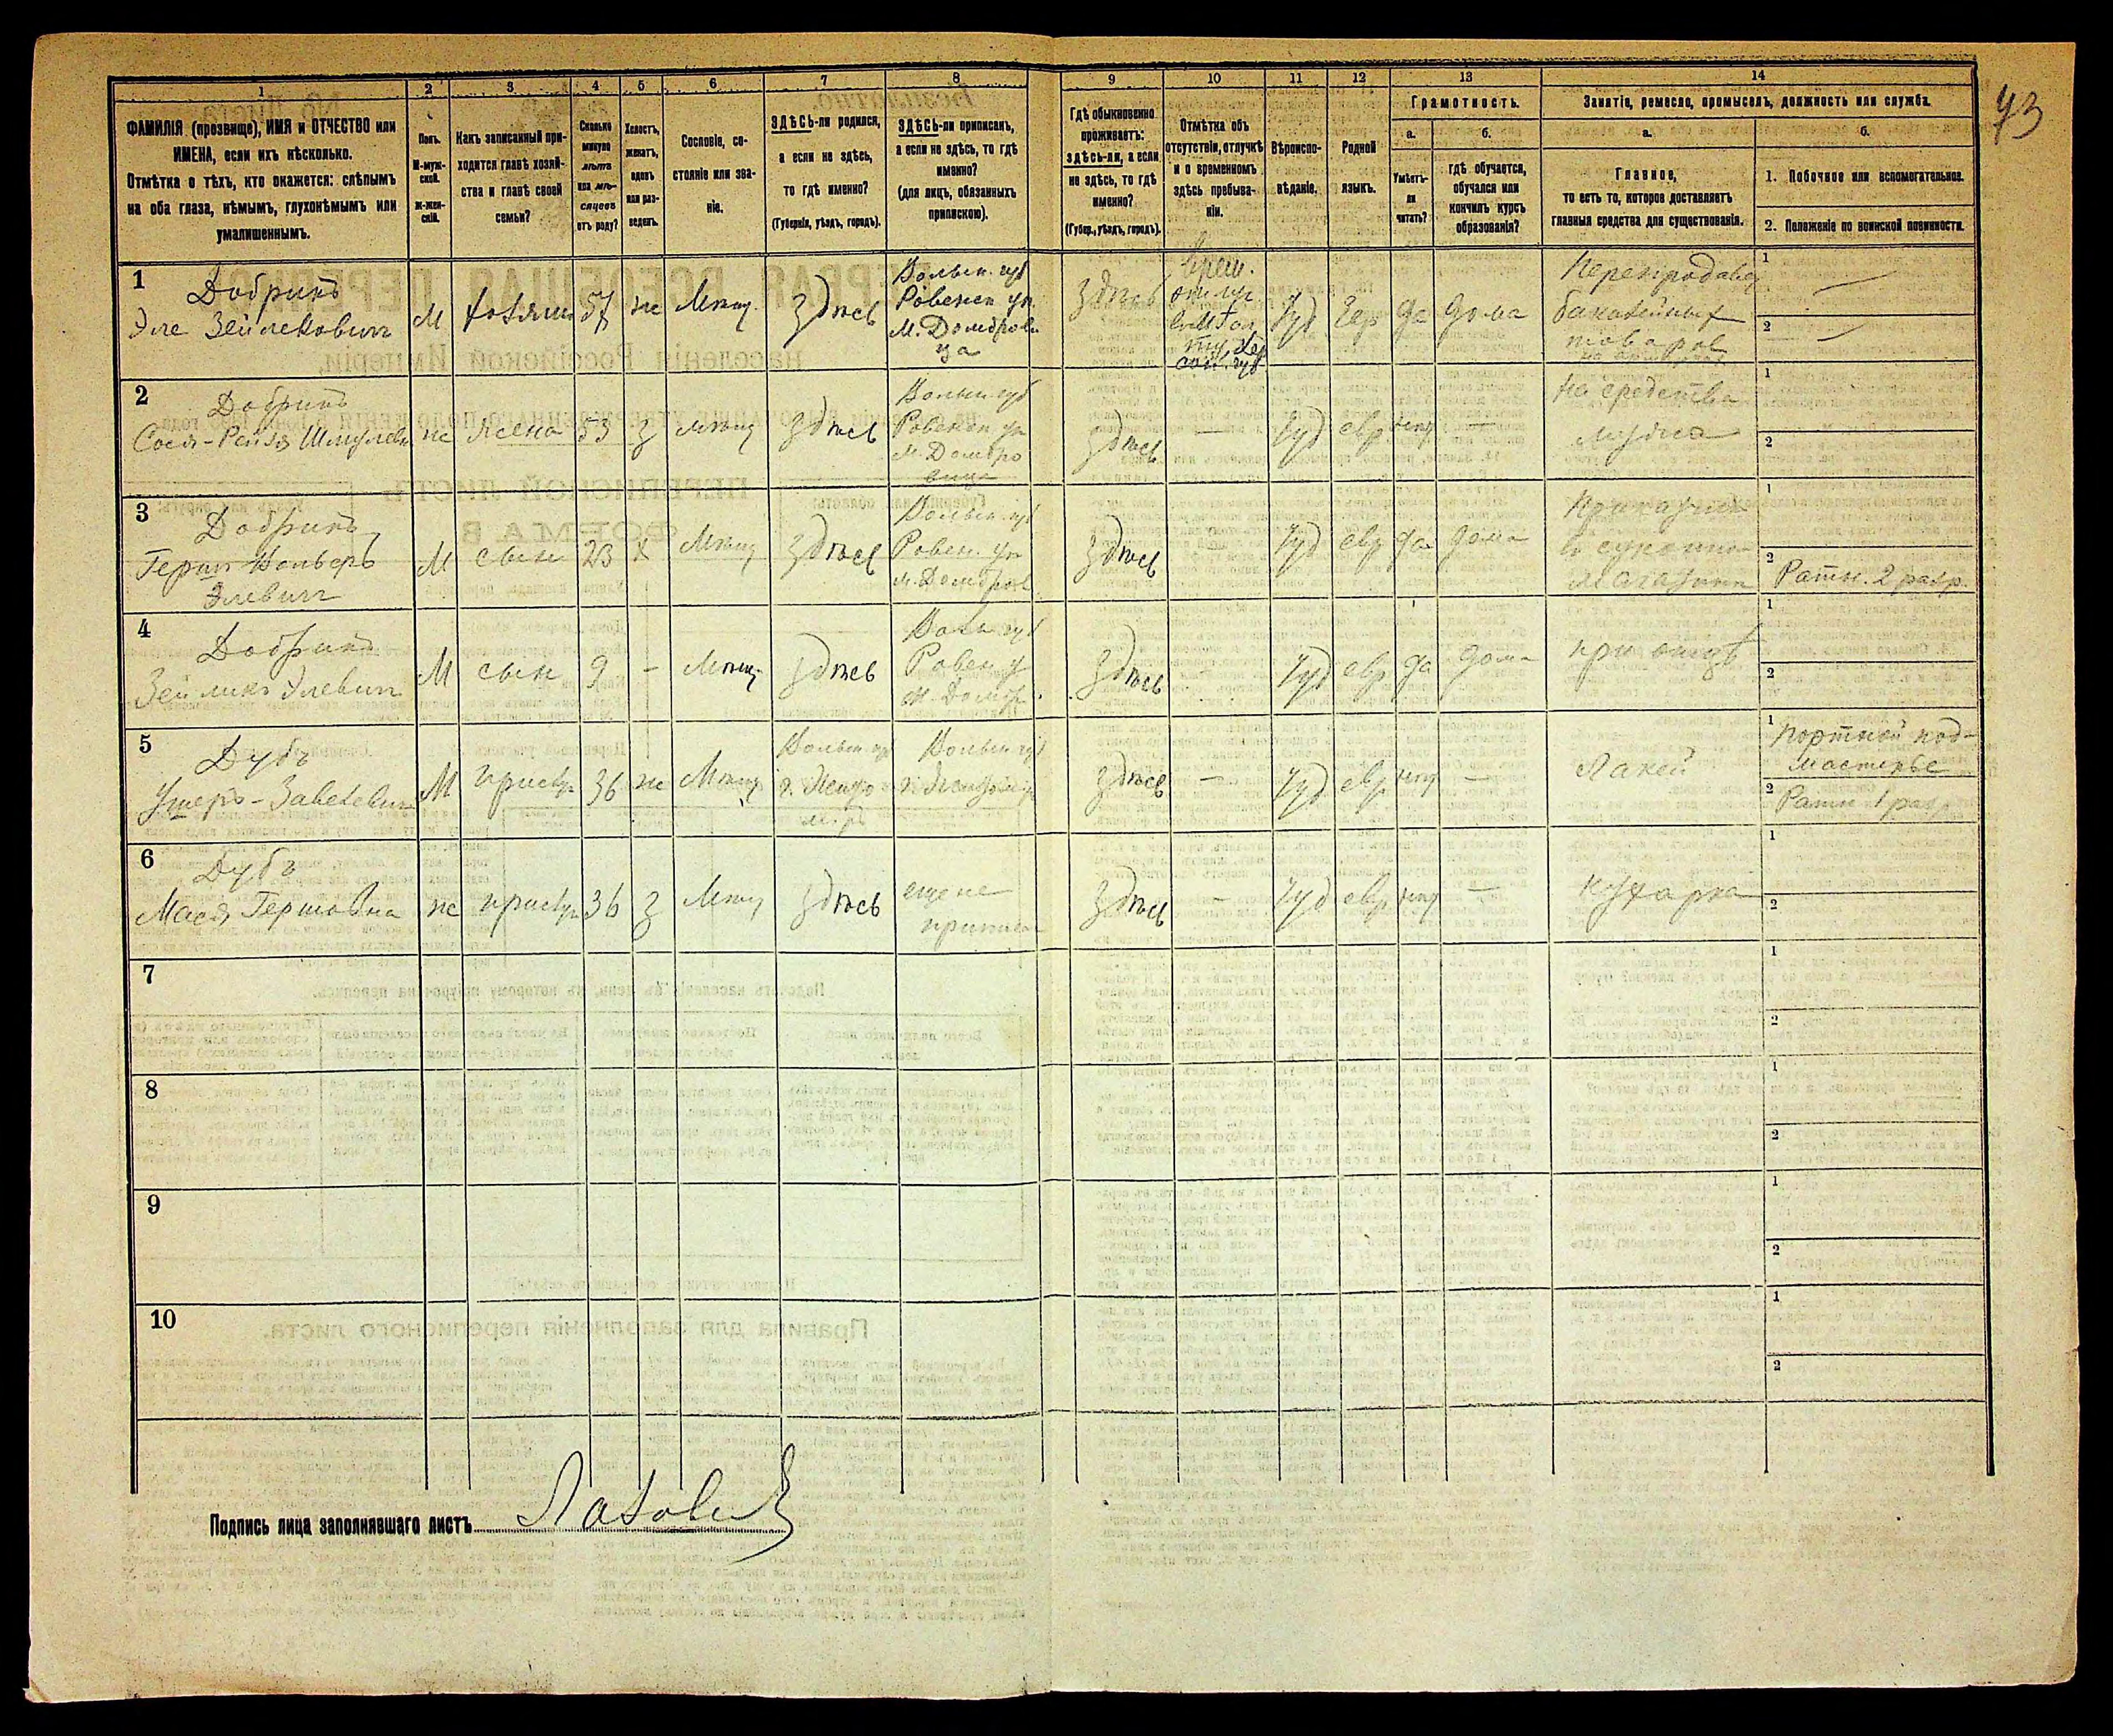 73
1 2 3 4 5 6 7 8 9 10 11 12 13 14
ФАМИЛІЯ (прозвище), ИМЯ и ОТЧЕСТВО или
ИМЕНА, если ихъ нѣсколько.
Отмѣтка о тѣхъ, кто окажется: слѣпымъ
на оба глаза, нѣмымъ, глухонѣмымъ или
умалишеннымъ.
Полъ.
М-муж-
ской.
ж-жен-
скій.
Какъ записанный при-
ходится главѣ хозяй-
ства и главѣ своей
семьи?
Сколько
минуло
лѣтъ
или мѣ-
сяцевъ
отъ роду?
Холостъ,
женатъ,
вдовъ
или раз-
веденъ.
Сословіе, со-
стояніе или зва-
ніе.
ЗДѢСЬ-ли родился,
а если не здѣсь,
то гдѣ именно?
(Губернія, уѣздъ, городъ).
ЗДѢСЬ-ли приписанъ,
а если не здѣсь, то гдѣ
именно?
(для лицъ, обязанныхъ
припискою).
Гдѣ обыкновенно
проживаетъ:
здѣсь-ли, а если
не здѣсь, то гдѣ
именно?
(Губер., уѣздъ, городъ).
Отмѣтка объ
отсутствіи, отлучкѣ
и о временномъ
здѣсь пребыва-
ніи.
Вѣроиспо-
вѣданіе.
Родной
языкъ.
Грамотность.
а.
Умѣетъ-
ли
читать?
б.
гдѣ обучается,
обучался или
кончилъ курсъ
образованія?
Занятіе, ремесло, промыселъ, должность или служба.
а.
Главное,
то есть то, которое доставляетъ
главныя средства для существованія.
б.
1. Побочное или вспомогательное.
2. Положеніе по воинской повинности.
1
Добринъ
Эле Зейлековичъ
М
хозяин
57
ж
Мѣщ.
Здѣсь
Волын. губ
Ровенск уѣ.
М. Домброви
ца
Здѣсь
Врем.
отлуч
Іуд
Евр
да
дома
Перепродавец
бакалейных
товаров
1 —
2 —
2
Добринъ
Сося-Рейзя Шмулевн
ж
Жена
53
З
мѣщ
Здѣсь
Волын губ
Ровенск уѣ
М. Домбро
вица
Здѣсь
—
Іуд
евр
нет
—
на средства
мужа
1
2
3
Добринъ
Герш Вольфъ
Элевичъ
М
сын
23
х
Мѣщ
Здѣсь
Волын губ
Ровен. уѣ
м. Домбров
Здѣсь
Іуд
евр
да
дома
Приказчик
в суконном
магазине
1
2 Ратн. 2 разр.
4
Добринъ
Зейликъ Элевичъ
М
сын
9
-
Мѣщ
Здѣсь
Волы губ
Ровен у
м. Домбр.
Здѣсь
-
Іуд
евр
да
дома
при отцѣ
1
2
5
Дубъ
М
прислуг
36
ж
Мѣщ
Волын гу
г. Жито
миръ
Волын губ
г. Житомир
Здѣсь
—
Іуд
евр
нет
—
Лакей
1 портной под-
мастерье
2 Ратн 1 разр
6
Дубъ
Мася Гершовна
ж
прислуг
36
З
Мѣщ
Здѣсь
еще не
приписан
Здѣсь
-
Іуд
евр
нет
—
кухарка
1
2
7
1
2
8
1
2
9
1
2
10
1
2
Подпись лица заполнявшаго листъ